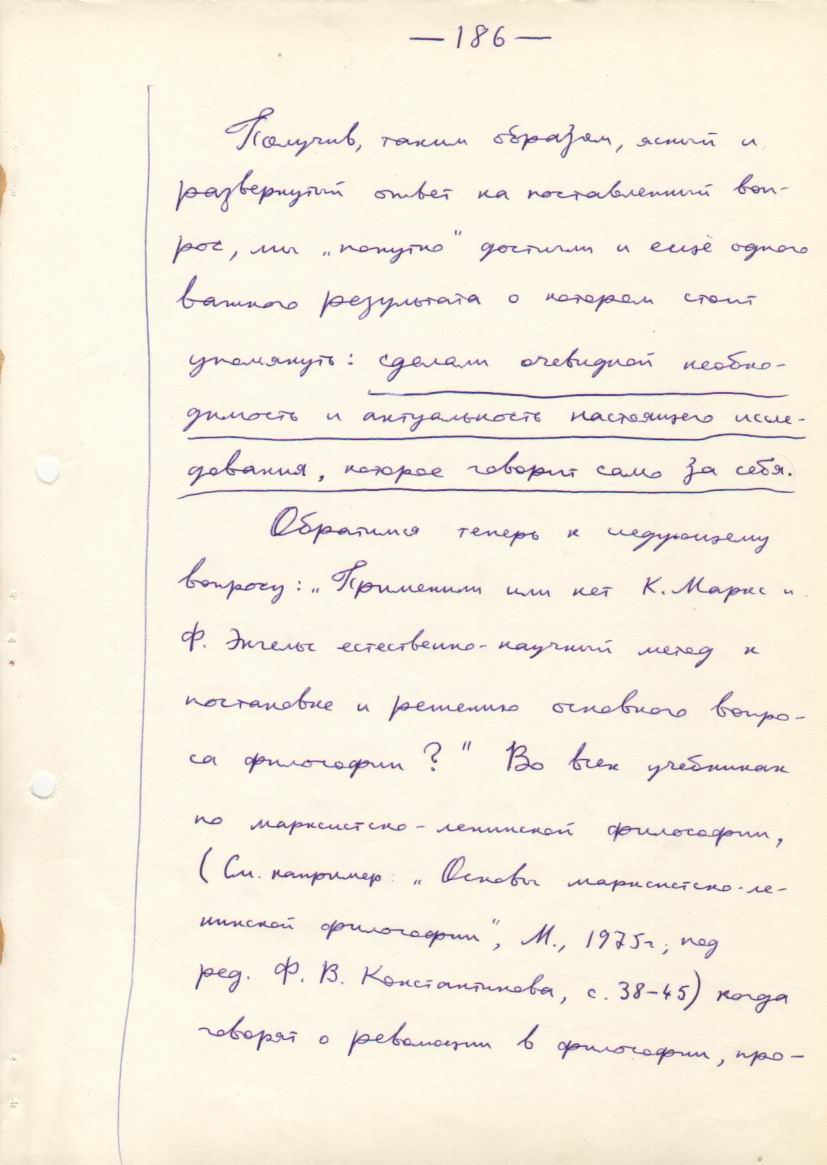 — 186 —
Получив, таким образом, ясный и
развернутый ответ на поставленный воп-
рос, мы „попутно" достигли и ещё одного
важного результата о котором стоит
упомянуть: сделали очевидной необхо-
димость и актуальность настоящего иссле-
дования, которое говорит само за себя.
Обратимся теперь к следующему
вопросу: „Применили или нет К. Маркс и
Ф. Энгельс естественно-научный метод к
постановке и решению основного вопро-
са философии?" Во всех учебниках
по марксистско-ленинской философии,
(См. например: „Основы марксистско-ле-
нинской философии", М., 1975г, под
ред. Ф. В. Константинова, с. 38–45) когда
говорят о революции в философии, про-